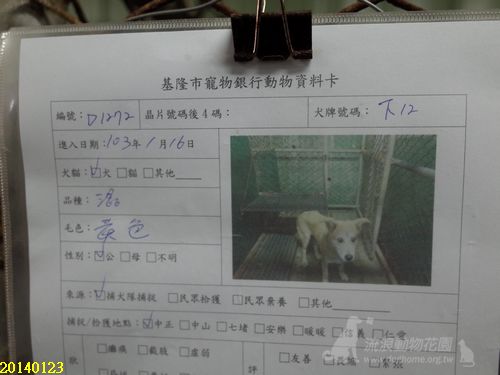 基隆市寵物銀行動物資料卡
編號: D1272 晶片號碼後4碼: 犬牌號碼: 下12
進入日期: 103年1月16日
犬貓: ☑犬 □貓 □其他
品種: 混
毛色: 黃色
性別: ☑公 □母 □不明
來源: ☑捕犬隊捕捉 □民眾拾獲 □民眾棄養 □其他
捕捉/拾獲地點: ☑中正 □中山 □七堵 □安樂 □暖暖 □信義 □仁愛
狀 □癱瘓 □截肢 □虛弱 評 □友善 □長癬 □緊張
流浪動物花園
www.doghome.org.tw
20140123